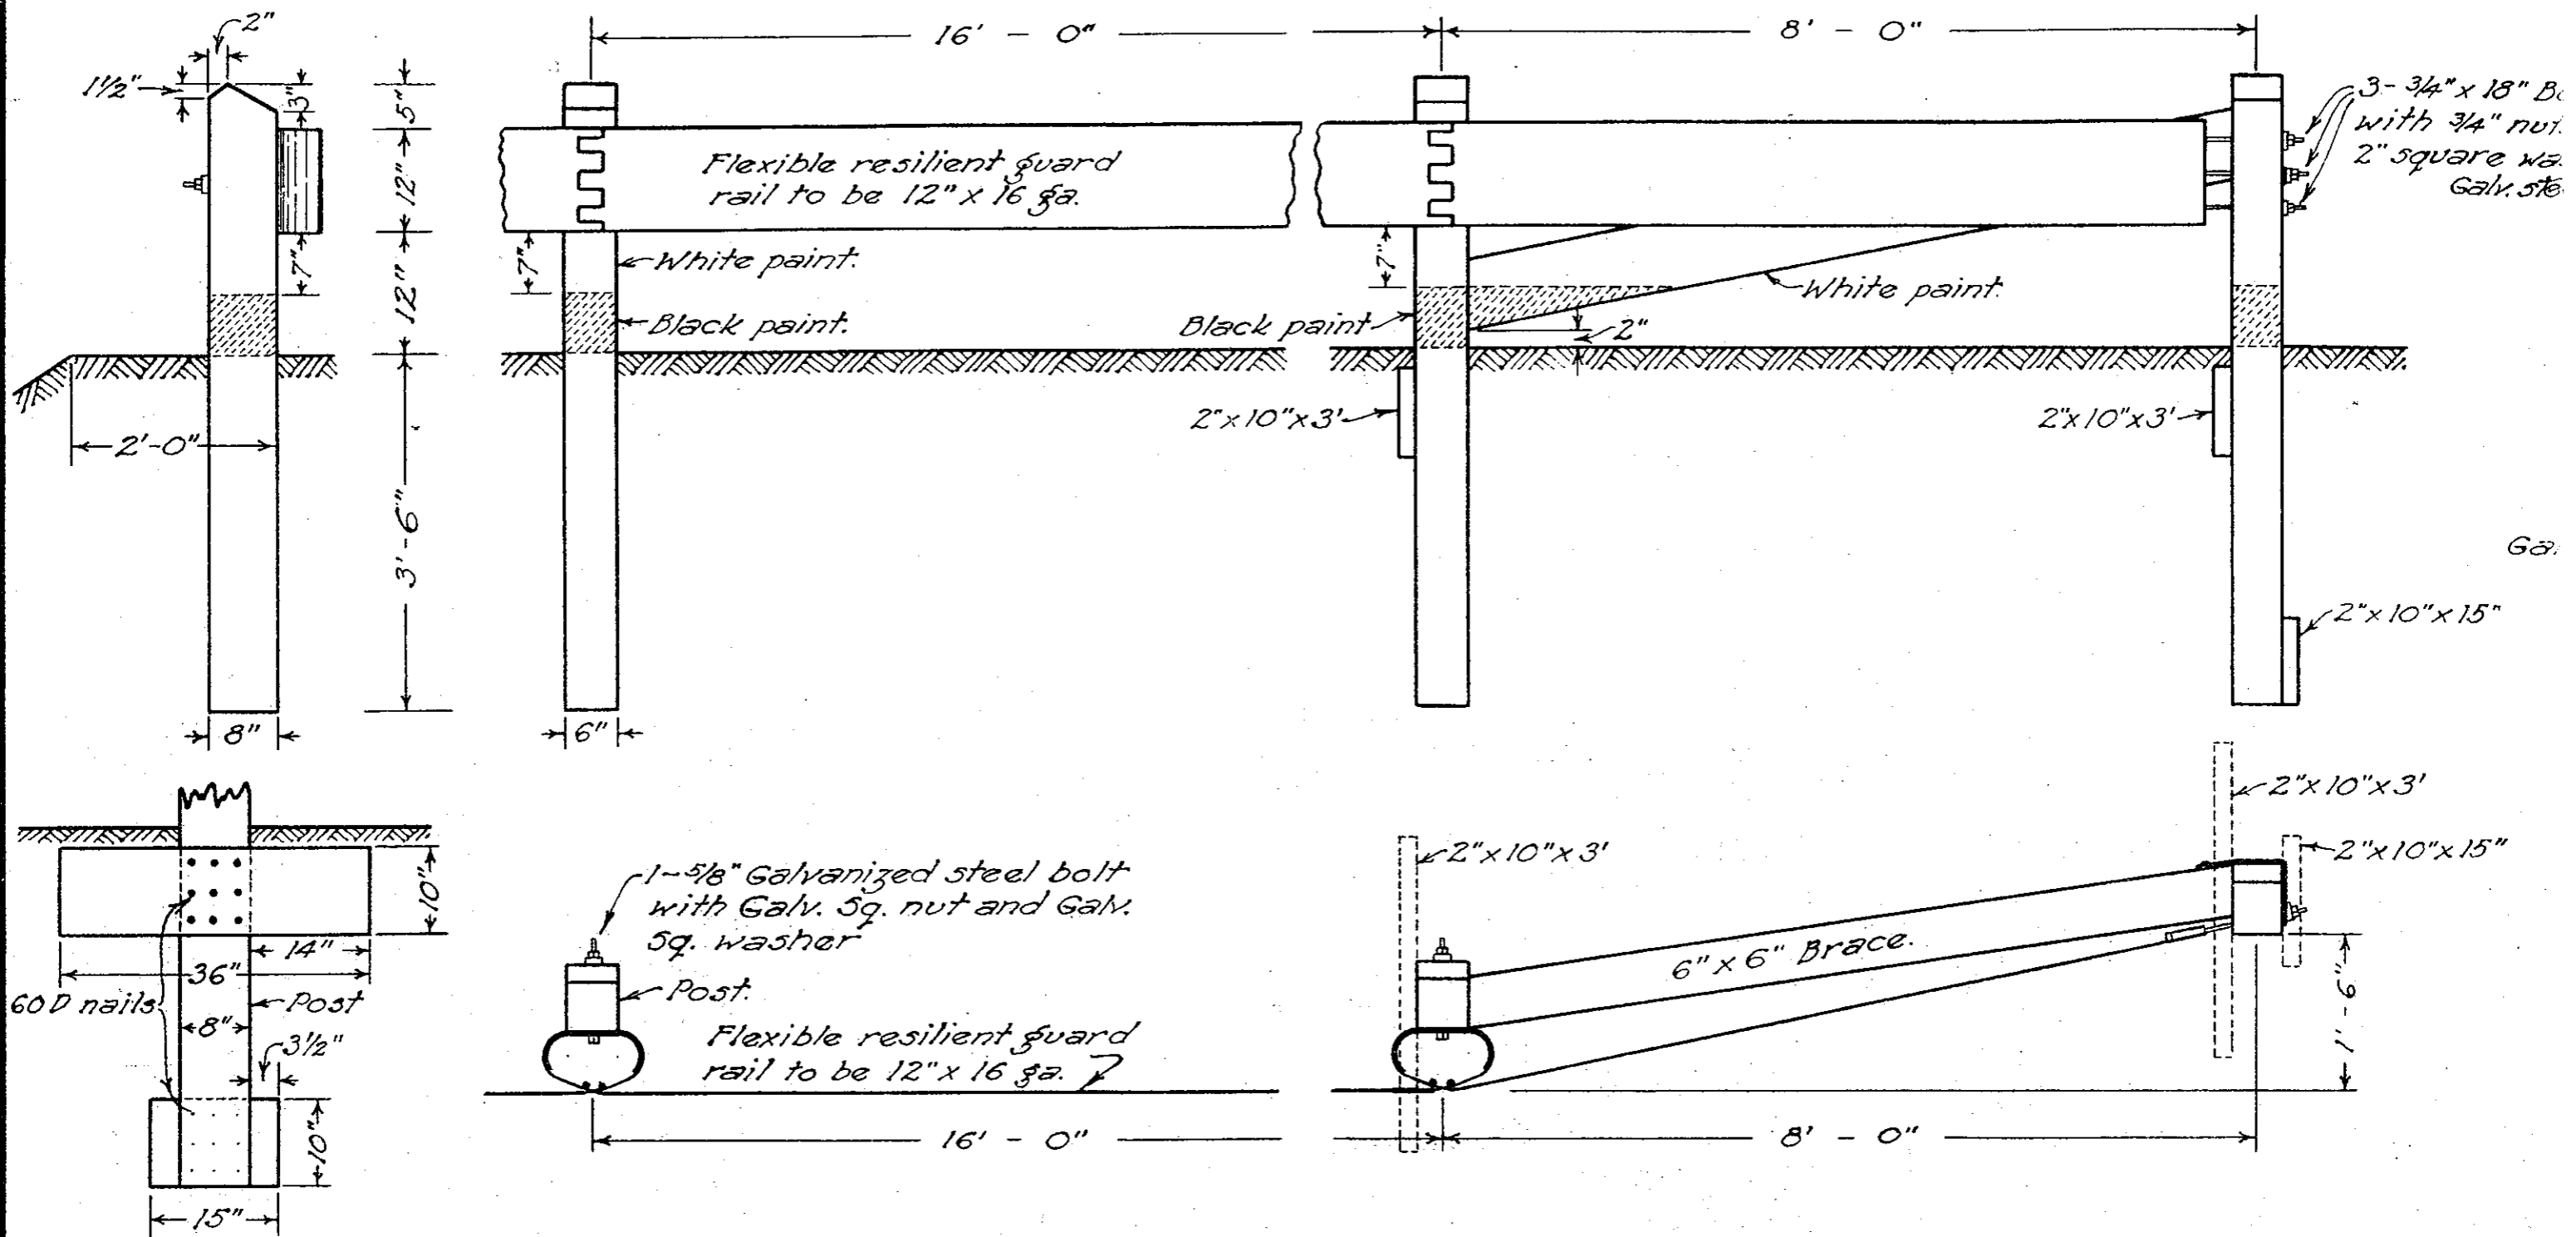 2"
1½"
3"
5"
12"
7"
12"
2'-0"
3'-6"
8"
16' - 0"
8' - 0"
Flexible resilient guard
rail to be 12" x 16 ga.
7"
White paint.
Black paint.
6"
7"
Black paint
White paint.
2"
2"x10"x3'
2"x10"x3'
3-¾" x 18"
with ¾"
2" square
Galv.
2"x10"x15"
10"
14"
36"
60D nails
Post
8"
3½"
10"
15"
1-5/8" Galvanized steel bolt
with Galv. Sq. nut and Galv.
Sq. washer
Post.
Flexible resilient guard
rail to be 12" x 16 ga.
16' - 0"
2"x10"x3'
6" x 6" Brace.
2"x10"x3'
2"x10"x15"
1'-6"
8' - 0"